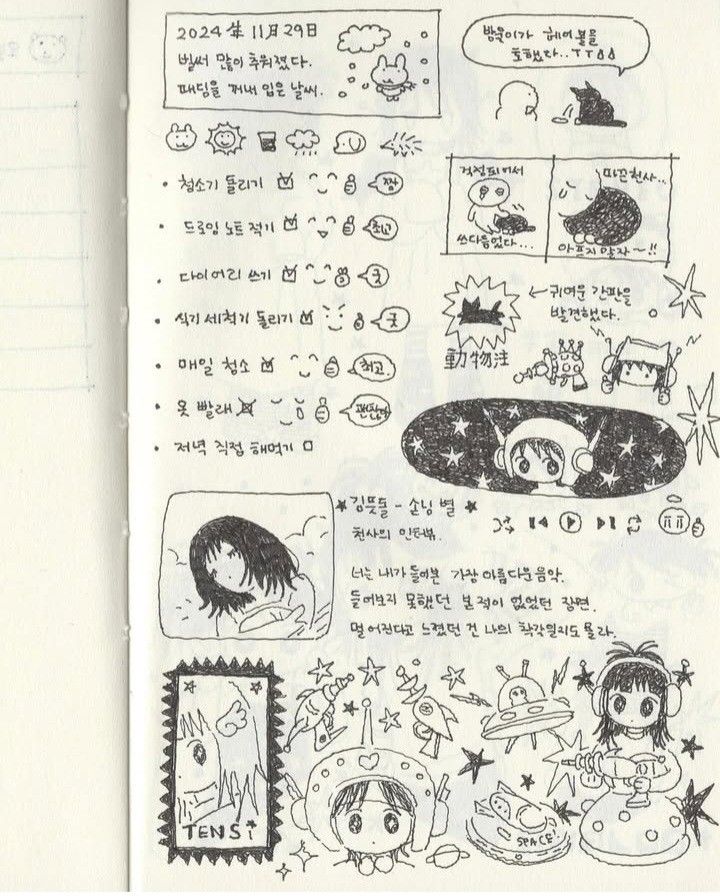 2024年 11月 29日
벌써 많이 추워졌다.
패딩을 꺼내 입은 날씨.
토했다..ㅜㅜ
청소기 돌리기 ☑ 짱
드로잉 노트 적기 ☑ 최고
다이어리 쓰기 ☑ 굿
식기 세척기 돌리기 ☑ 굿
매일 청소 ☑ 최고
옷 빨래
저녁 직접 해먹기 □
걱정되어서
쓰다듬었다...
따끈천사...
아프지 말자~!!
← 귀여운 간판을
발견했다.
動物注
★ 김뜻돌 - 손님 별 ★
천사의 인터뷰.
너는 내가 들어본 가장 아름다운 음악.
들어보지 못했던 본 적이 없었던 장면.
멀어진다고 느꼈던 건 나의 착각일지도 몰라.
TENSi
SPACE!